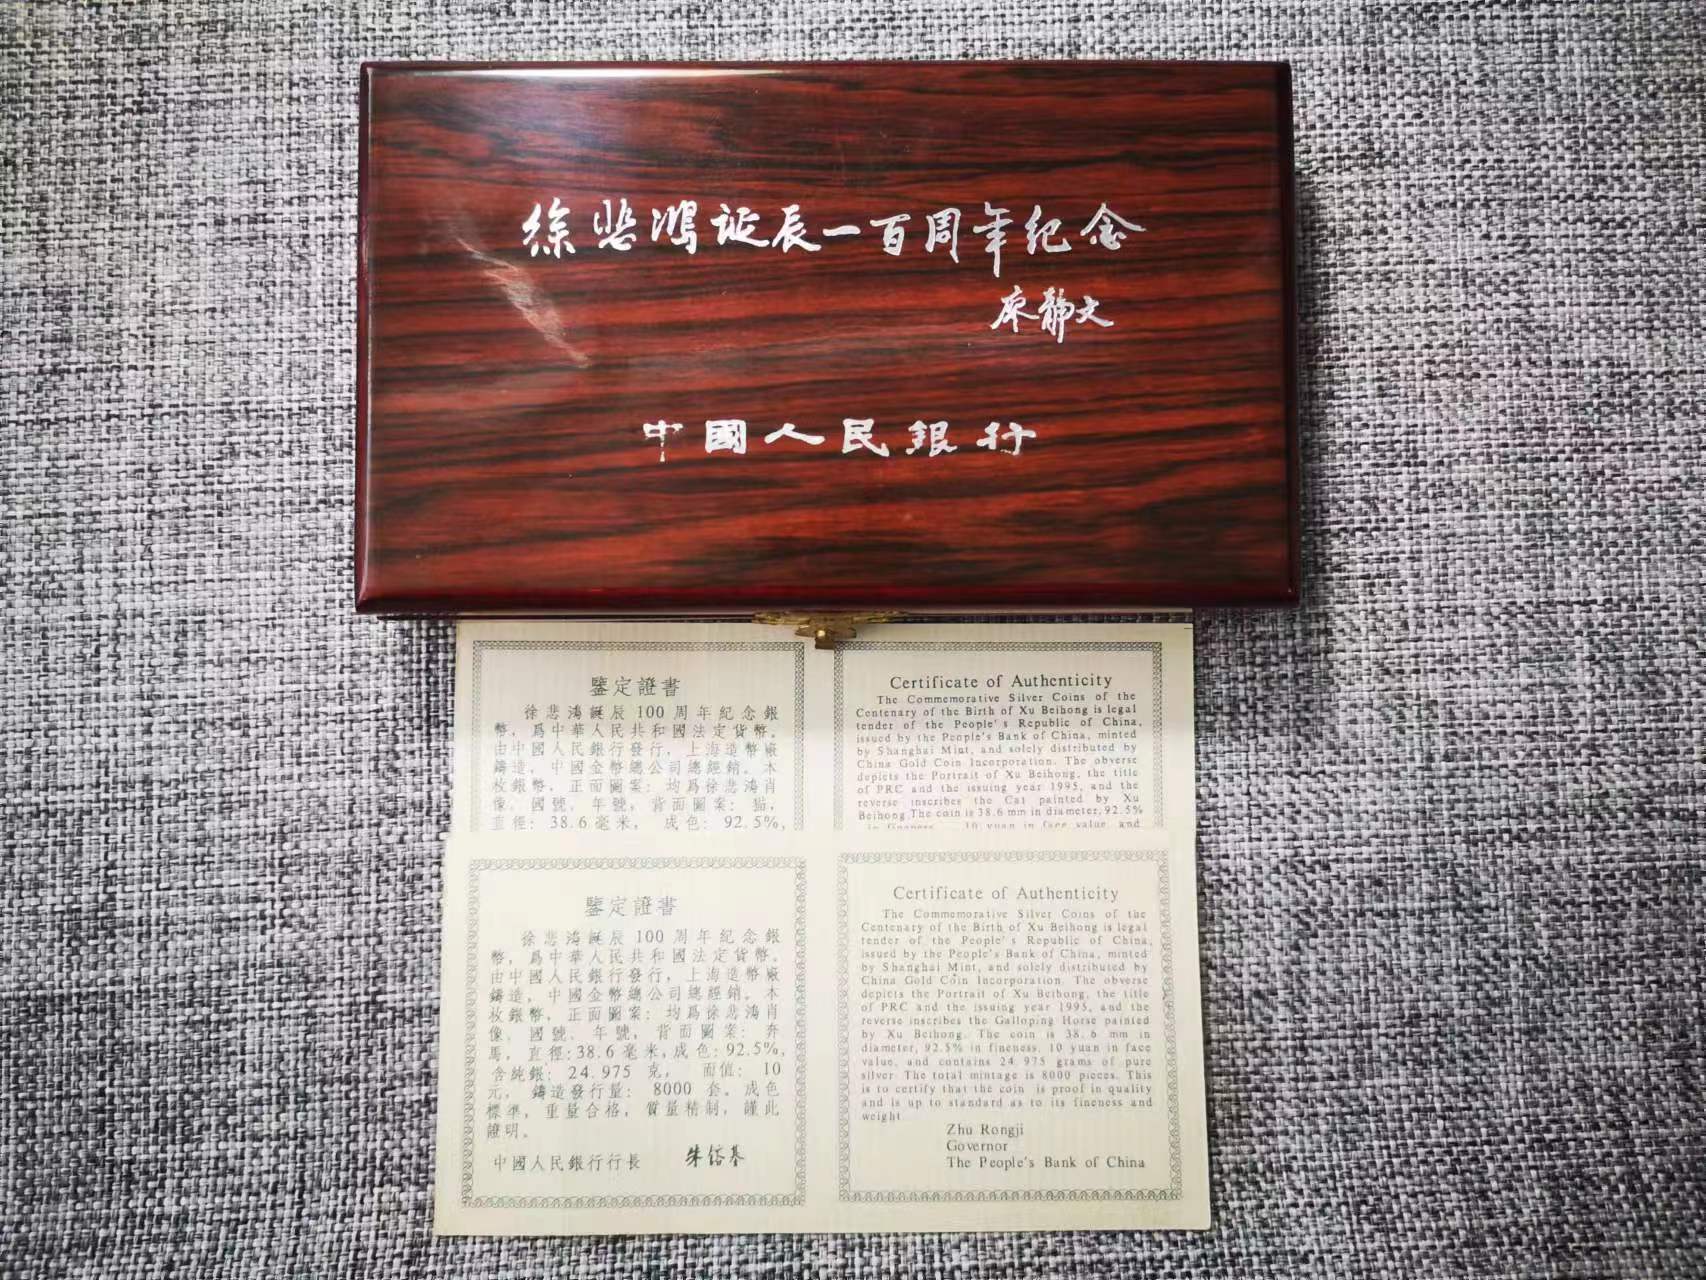 徐悲鴻誕辰一百周年纪念
廖靜文
中國人民銀行
鑒定證書
徐悲鴻誕辰100周年紀念銀
幣，爲中華人民共和國法定貨幣。
由中國人民銀行發行，上海造幣廠
鑄造，中國金幣總公司總經銷。本
枚銀幣，正面圖案：均爲徐悲鴻肖
像、國號、年號，背面圖案：猫，
直徑：38.6毫米，成色：92.5%，
Certificate of Authenticity
The Commemorative Silver Coins of the
Centenary of the Birth of Xu Beihong is legal
tender of the People's Republic of China,
issued by the People's Bank of China, minted
by Shanghai Mint, and solely distributed by
China Gold Coin Incorporation. The obverse
depicts the Portrait of Xu Beihong, the title
of PRC and the issuing year 1995, and the
reverse inscribes the Cat painted by Xu
Beihong The coin is 38.6 mm in diameter, 92.5%
in fineness 10 yuan in face value, and
鑒定證書
徐悲鴻誕辰100周年紀念銀
幣，爲中華人民共和國法定貨幣。
由中國人民銀行發行，上海造幣廠
鑄造，中國金幣總公司總經銷。本
枚銀幣，正面圖案：均爲徐悲鴻肖
像、國號、年號，背面圖案：奔
馬，直徑：38.6毫米，成色：92.5%，
含純銀：24.975克，面值：10
元，鑄造發行量：8000套。成色
標準，重量合格，質量精制，謹此
證明。
中國人民銀行行長 朱鎔基
Certificate of Authenticity
The Commemorative Silver Coins of the
Centenary of the Birth of Xu Beihong is legal
tender of the People's Republic of China,
issued by the People's Bank of China, minted
by Shanghai Mint, and solely distributed by
China Gold Coin Incorporation. The obverse
depicts the Portrait of Xu Beihong, the title
of PRC and the issuing year 1995, and the
reverse inscribes the Galloping Horse painted
by Xu Beihong. The coin is 38.6 mm in
diameter, 92.5% in fineness, 10 yuan in face
value, and contains 24.975 grams of pure
silver. The total mintage is 8000 pieces. This
is to certify that the coin is proof in quality
and is up to standard as to its fineness and
weight
Zhu Rongji
Governor
The People's Bank of China